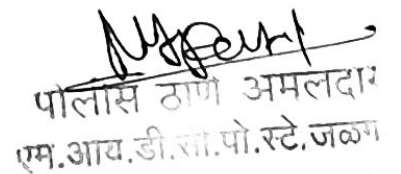 पोलीस ठाणे अमलदार
एम.आय.डी.सी.पो.स्टे.जळग